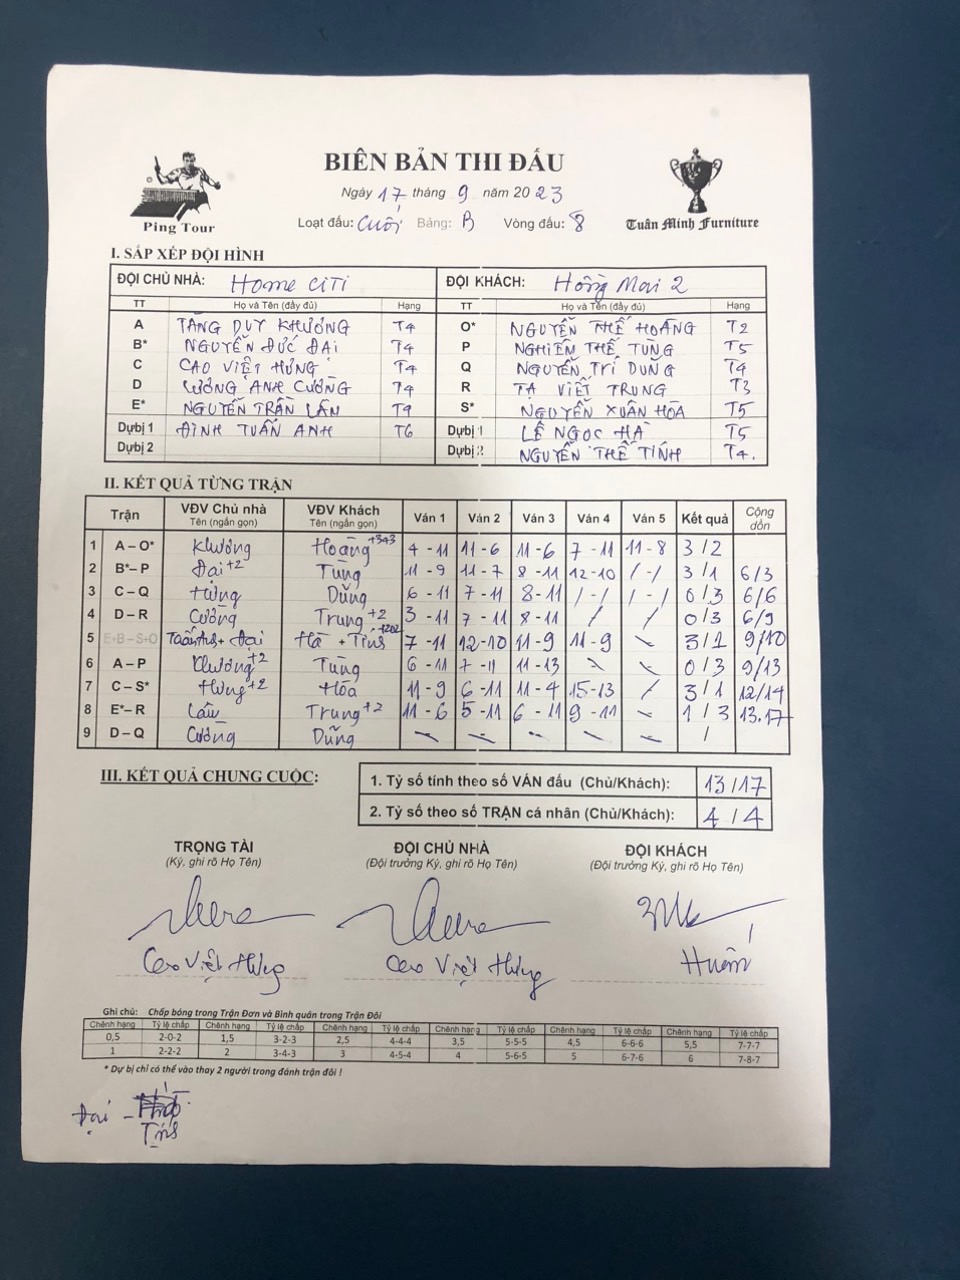 BIÊN BẢN THI ĐẤU
Ngày 17 tháng 9 năm 2023
Loạt đấu: Cuối Bảng: B Vòng đấu: 8
Ping Tour
Tuân Minh Furniture
I. SẮP XẾP ĐỘI HÌNH
ĐỘI CHỦ NHÀ: Home CiTi ĐỘI KHÁCH: Hồng Mai 2
TT Họ và Tên (đầy đủ) Hạng TT Họ và Tên (đầy đủ) Hạng
A TĂNG DUY KHƯƠNG T4 O* NGUYỄN THẾ HOÀNG T2
B* NGUYỄN ĐỨC ĐẠI T4 P NGHIÊM THẾ TÙNG T5
C CAO VIỆT HƯNG T4 Q NGUYỄN TRÍ DŨNG T4
D LƯƠNG ANH CƯỜNG T4 R TẠ VIẾT TRUNG T3
E* NGUYỄN TRẦN LÂN T4 S* NGUYỄN XUÂN HÒA T5
Dựbị 1 ĐINH TUẤN ANH T6 Dựbị 1 LÊ NGỌC HÀ T5
Dựbị 2 Dựbị 2 NGUYỄN THẾ TÍNH T4.
II. KẾT QUẢ TỪNG TRẬN
Trận VĐV Chủ nhà Tên (ngắn gọn) VĐV Khách Tên (ngắn gọn) Ván 1 Ván 2 Ván 3 Ván 4 Ván 5 Kết quả Cộng dồn
1 A – O* Khương Hoàng +343 4 - 11 11 - 6 11 - 6 7 - 11 11 - 8 3 / 2
2 B* – P Đại +2 Tùng 11 - 9 11 - 7 8 - 11 12 - 10 / - / 3 / 1 6/3
3 C – Q Hưng Dũng 6 - 11 7 - 11 8 - 11 / - / / - / 0 / 3 6/6
4 D – R Cường Trung +2 3 - 11 7 - 11 8 - 11 / / 0 / 3 6/9
5 E+B – S+O Tuấn Anh + Đại Hà + Tính +202 7 - 11 12 - 10 11 - 9 11 - 9 \ 3 / 1 9/10
6 A – P Khương +2 Tùng 6 - 11 7 - 11 11 - 13 \ \ 0 / 3 9/13
7 C – S* Hưng +2 Hòa 11 - 9 6 - 11 11 - 4 15 - 13 / 3 / 1 12/14
8 E* – R Lân Trung +2 11 - 6 5 - 11 6 - 11 9 - 11 \ 1 / 3 13.17
9 D – Q Cường Dũng \ \ \ \ \ /
III. KẾT QUẢ CHUNG CUỘC:
1. Tỷ số tính theo số VÁN đấu (Chủ/Khách): 13 / 17
2. Tỷ số theo số TRẬN cá nhân (Chủ/Khách): 4 / 4
TRỌNG TÀI ĐỘI CHỦ NHÀ ĐỘI KHÁCH
(Ký, ghi rõ Họ Tên) (Đội trưởng Ký, ghi rõ Họ Tên) (Đội trưởng Ký, ghi rõ Họ Tên)
Cao Việt Hưng Cao Việt Hưng Huấn
Ghi chú: Chấp bóng trong Trận Đơn và Bình quân trong Trận Đôi
Chênh hạng Tỷ lệ chấp Chênh hạng Tỷ lệ chấp Chênh hạng Tỷ lệ chấp Chênh hạng Tỷ lệ chấp Chênh hạng Tỷ lệ chấp Chênh hạng Tỷ lệ chấp
0,5 2-0-2 1,5 3-2-3 2,5 4-4-4 3,5 5-5-5 4,5 6-6-6 5,5 7-7-7
1 2-2-2 2 3-4-3 3 4-5-4 4 5-6-5 5 6-7-6 6 7-8-7
* Dự bị chỉ có thể vào thay 2 người trong đánh trận đôi !
Đại –
Tính